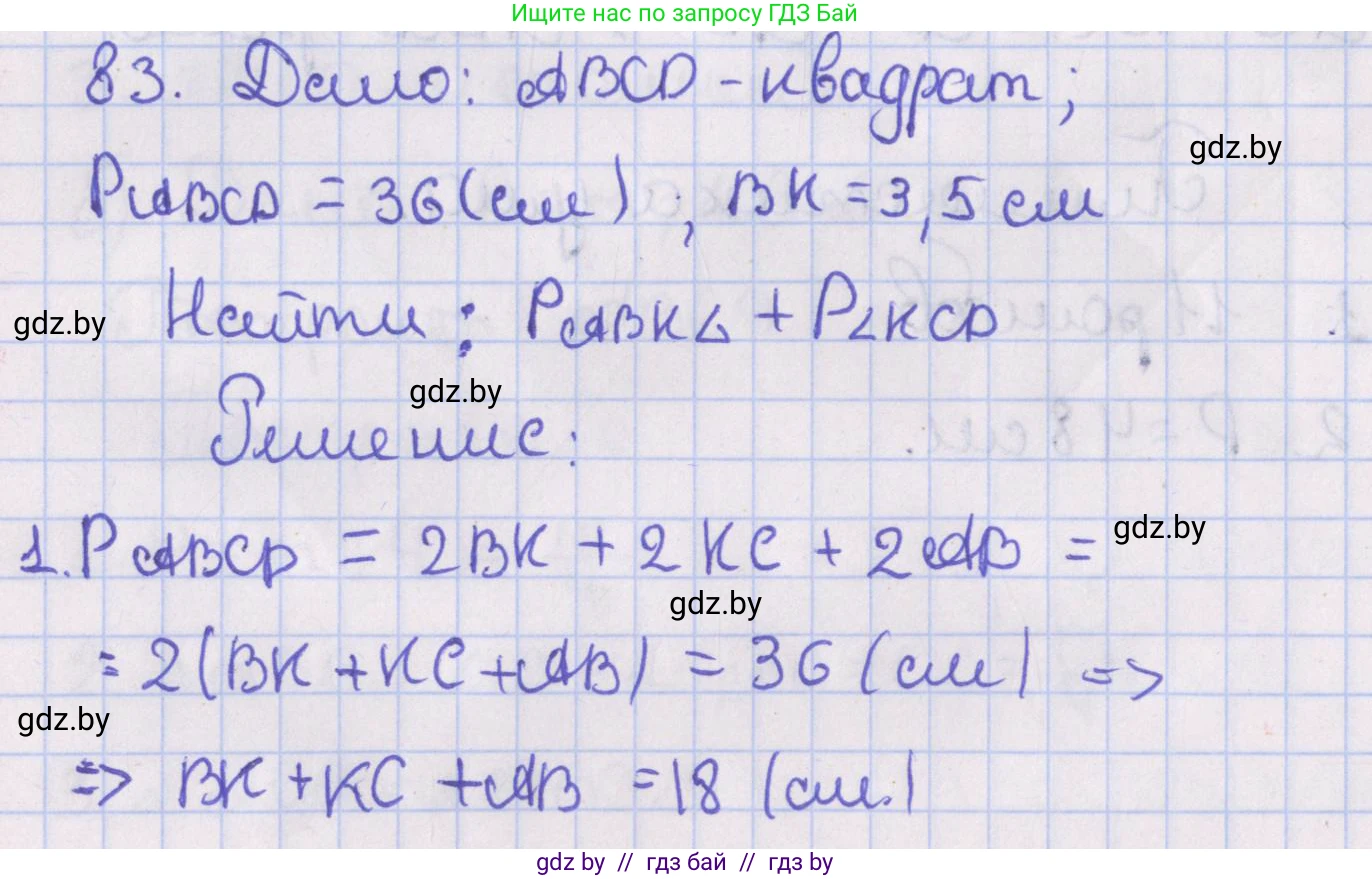 Ищите нас по запросу ГДЗ Бай
83. Дано: ABCD - квадрат;
gdz.by
PABCD = 36 (см) ; BK = 3,5 см
gdz.by Найти: PABKL + PLKCD
gdz.by
Решение:
1. PABCD = 2BK + 2KC + 2AB =
gdz.by
gdz.by
= 2(BK + KC + AB) = 36 (см) =>
gdz.by
=> BK + KC + AB = 18 (см.)
gdz by // гдз бай // гдз by